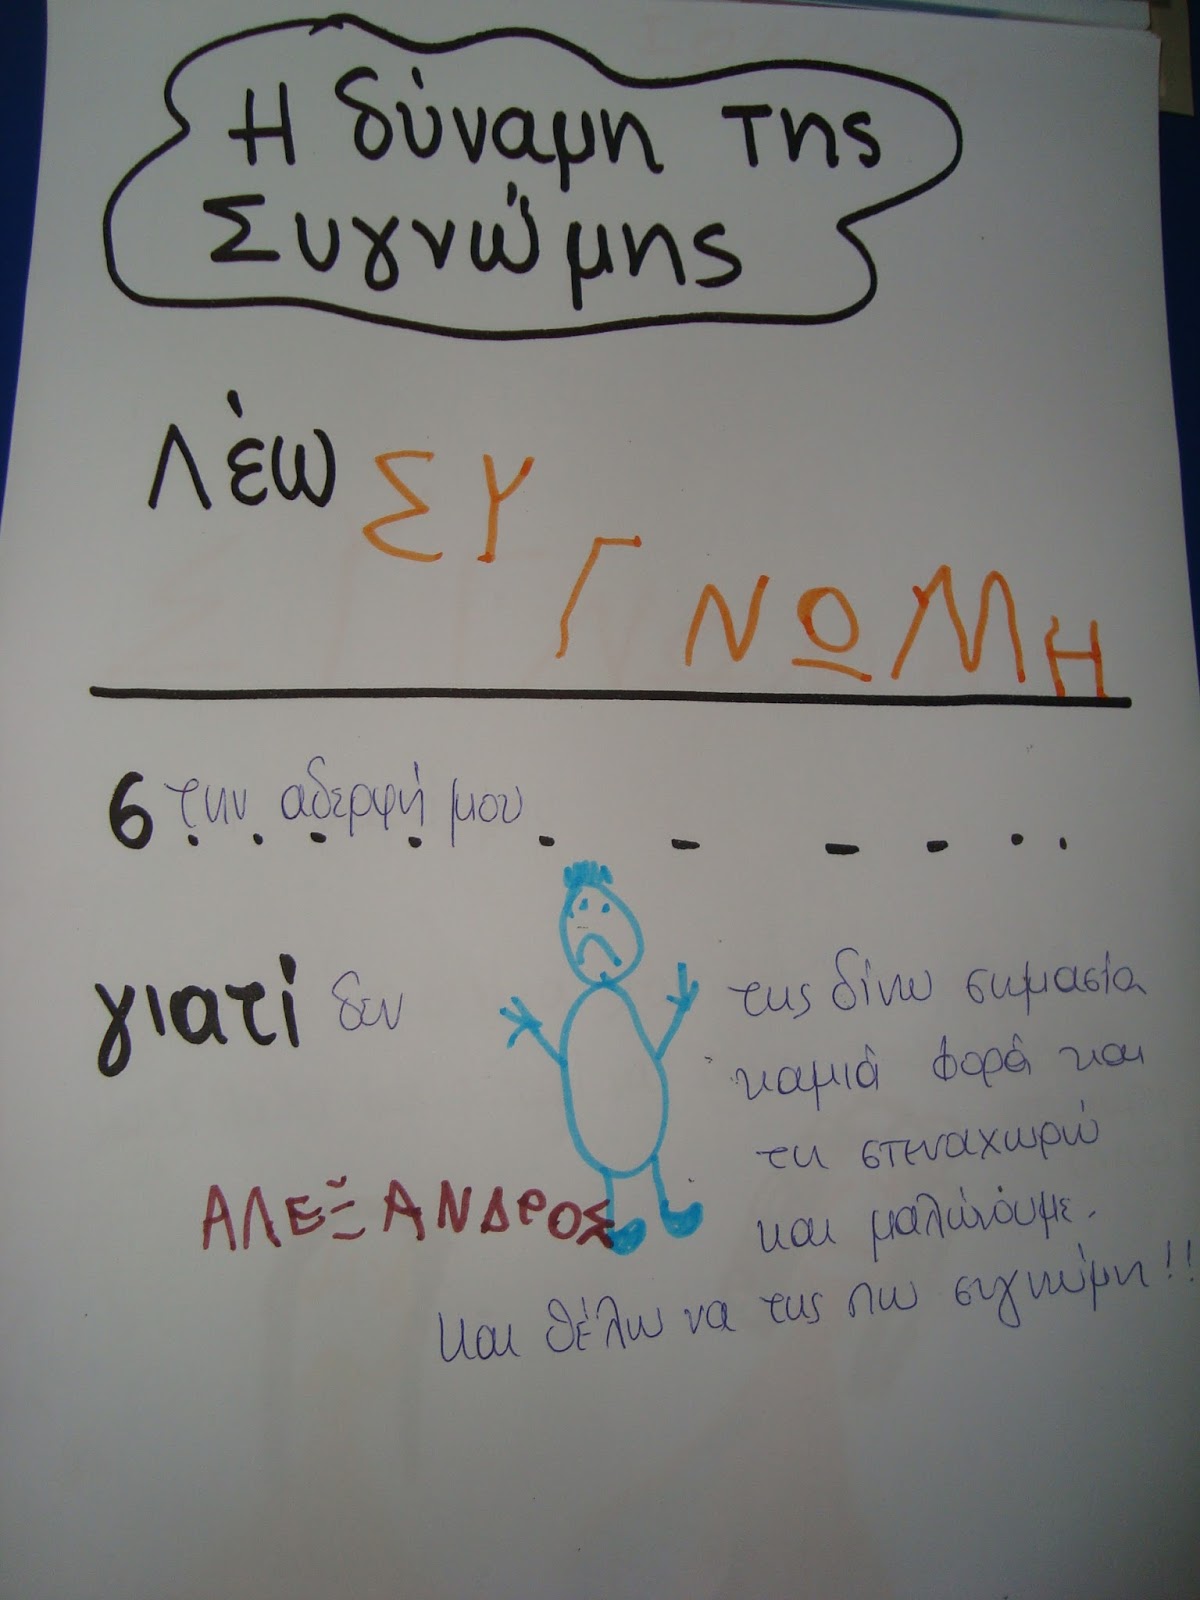 Η δύναμη της
Συγνώμης
Λέω ΣΥΓΝΩΜΗ
σ την αδερφή μου
γιατί δεν της δίνω σημασία
καμιά φορά και
τη στεναχωρώ
και μαλώνουμε.
ΑΛΕΞΑΝΔΡΟΣ
και θέλω να της πω συγνώμη!!